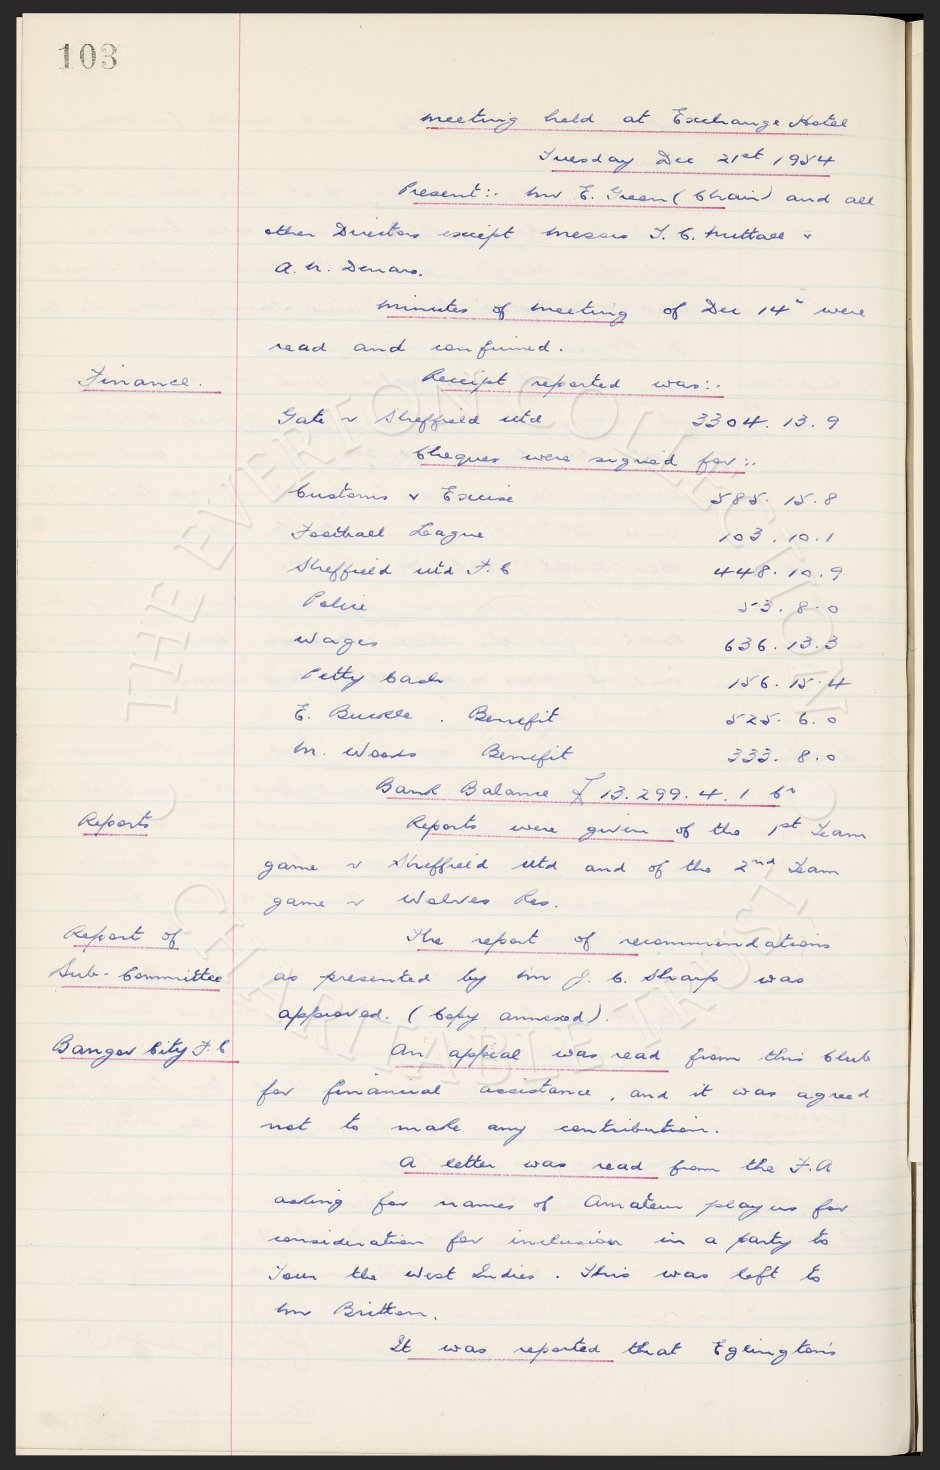 103
Meeting held at Exchange Hotel
Tuesday Dec 21st 1954
Present:- Mr E. Green (Chair) and all
other Directors except Messrs T. C. Nuttall &
A. M. Denaro.
Minutes of Meeting of Dec 14" were
read and confirmed.
Finance. Receipt reported was:-
Gate v Sheffield Utd 3304. 13. 9
Cheques were signed for:-
Customs & Excise 585. 15. 8
Football League 103. 10. 1
Sheffield Utd F.C 448. 10. 9
Police 53. 8. 0
Wages 636. 13. 3
Petty Cash 156. 15. 4
E. Buckle. Benefit 525. 6. 0
M. Woods Benefit 333. 8. 0
Bank Balance £ 13.299. 4. 1 Cr
Reports Reports were given of the 1st Team
game v Sheffield Utd and of the 2nd Team
game v Wolves Res.
Report of The report of recommendations
Sub-Committee as presented by Mr J. C. Sharp was
approved. (Copy annexed).
Bangor City F.C An appeal was read from this Club
for financial assistance, and it was agreed
not to make any contribution.
A letter was read from the F.A
asking for names of Amateur players for
consideration for inclusion in a party to
Tour the West Indies. This was left to
Mr Britton.
It was reported that Eglington's
© THE EVERTON COLLECTION
CHARITABLE TRUST